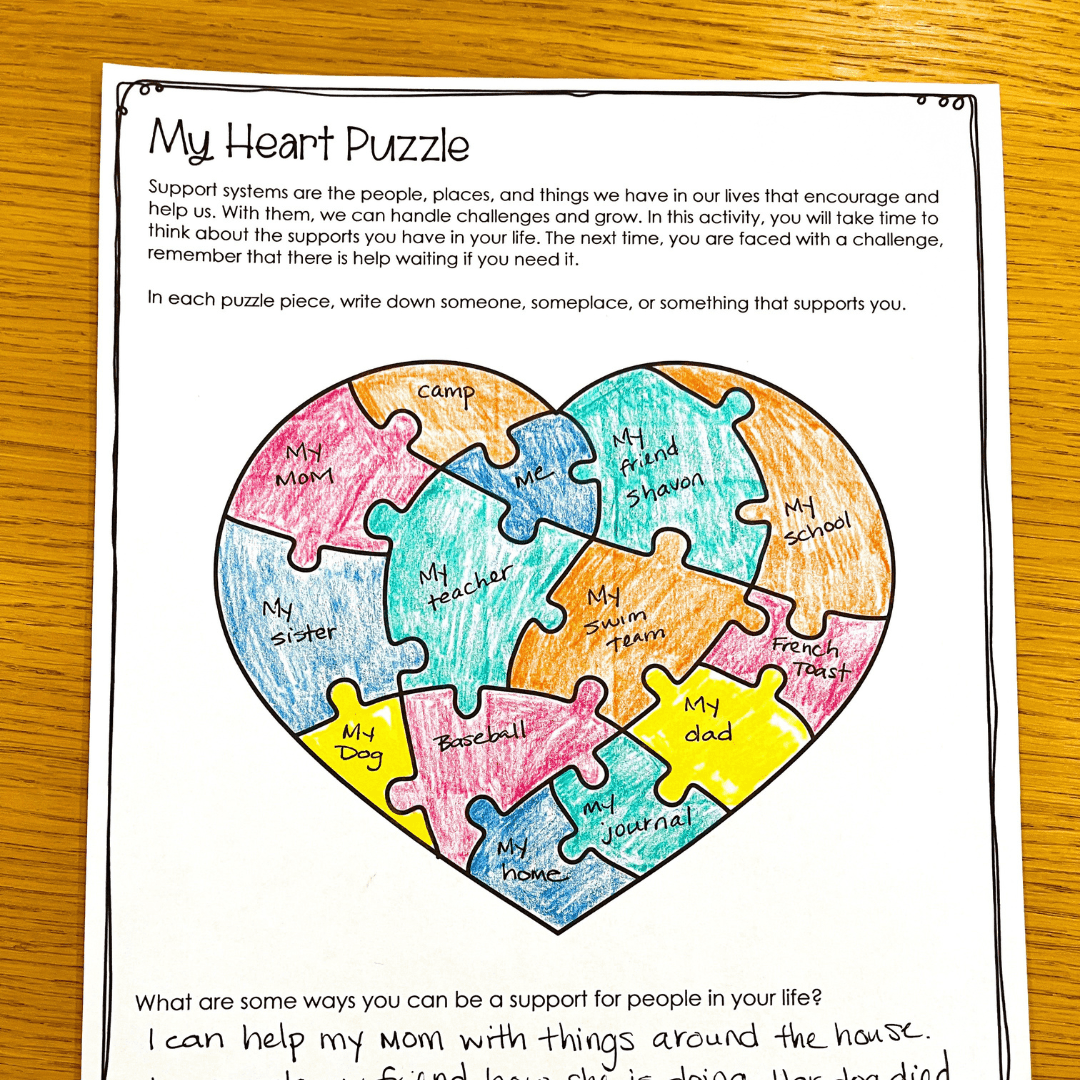 My Heart Puzzle
Support systems are the people, places, and things we have in our lives that encourage and
help us. With them, we can handle challenges and grow. In this activity, you will take time to
think about the supports you have in your life. The next time, you are faced with a challenge,
remember that there is help waiting if you need it.
In each puzzle piece, write down someone, someplace, or something that supports you.
camp
My
Mom
me
My
friend
Shavon
My
school
My
sister
My
teacher
My
swim
team
French
Toast
My
Dog
Baseball
My
dad
my
journal
My
home
What are some ways you can be a support for people in your life?
I can help my mom with things around the house.
friend how she is doing. Her dog died